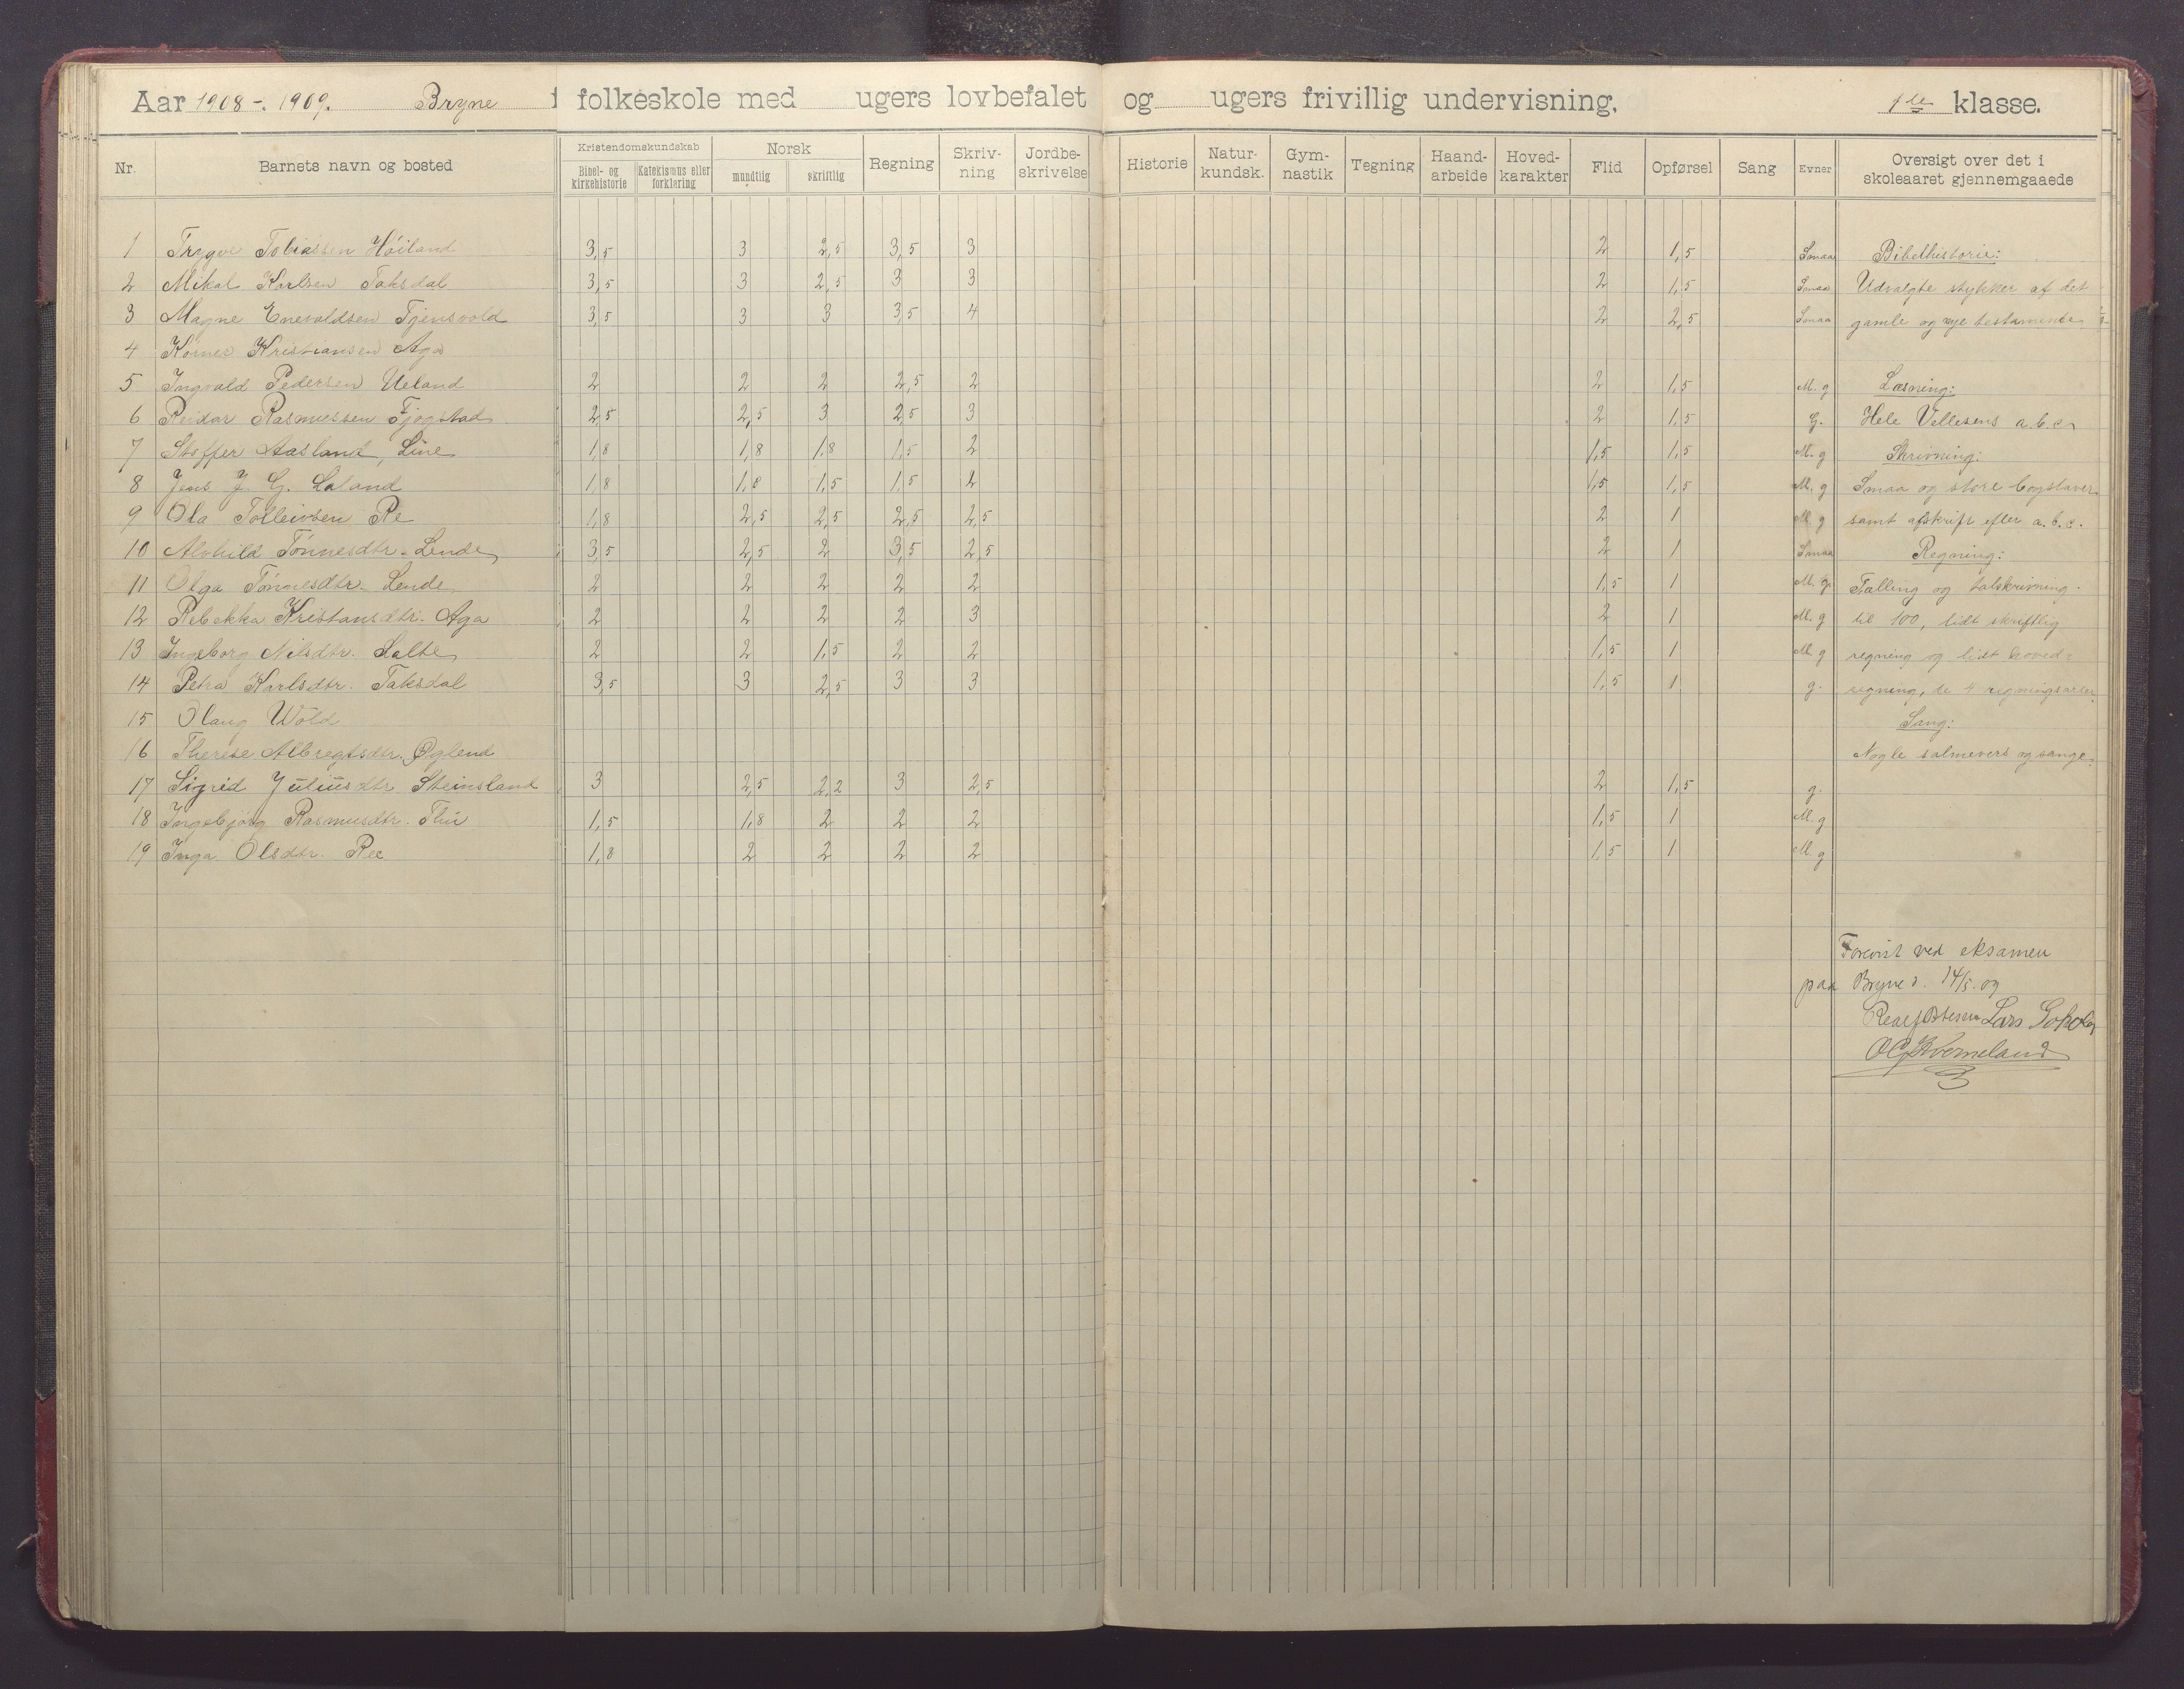 Aar 1908-1909. Bryne folkeskole med ugers lovbefalet og ugers frivillig undervisning, 1ste klasse.
Nr. Barnets navn og bosted Kristendomskundskab Bibel- og kirkehistorie Katekismus eller forklaring Norsk mundtlig skriftlig Regning Skriv-ning Jordbe-skrivelse Historie Natur-kundsk. Gym-nastik Tegning Haand-arbeide Hoved-karakter Flid Opførsel Sang Evner Oversigt over det i skoleaaret gjennemgaaede
1 Trygve Tobiassen Höiland 3,5 3 2,5 3,5 3 2 1,5 Smaa Bibelhistorie:
2 Mikal Karlsen Taksdal 3,5 3 2,5 3 3 2 1,5 Smaa Udvalgte stykker af det
3 Magne Enevaldsen Tjensvold 3,5 3 3 3,5 4 2 2,5 Smaa gamle og nye testamente
4 Kristiansen Aga
5 Ingvald Pedersen Ueland 2 2 2 2,5 2 2 1,5 M. g Læsning:
6 Reidar Rasmussen Fjogstad 2,5 2,5 3 2,5 3 2 1,5 G. Hele Vellesens a.b.c
7 Stoffer Aasland, Line 1,8 1,8 1,8 1,5 2 1,5 1,5 M. g Skrivning:
8 Jens J. G. Laland 1,8 1,8 1,5 1,5 2 1,5 1,5 M. g Smaa og store bogstaver
9 Ola Tolleivsen Re 1,8 2,5 2,5 2,5 2,5 2 1 M. g samt afskrift efter a.b.c.
10 Alvhild Tönnesdtr. Lende 3,5 2,5 2 3,5 2,5 2 1 Smaa Regning:
11 Olga Tönnesdtr. Lende 2 2 2 2 2 1,5 1 M. g. Tælling og talskrivning
12 Rebekka Kristansdtr. Aga 2 2 2 2 3 2 1 M. g til 100, lidt skriftlig
13 Ingeborg Nilsdtr. Salte 2 2 1,5 2 2 1,5 1 M. g regning og lidt hoved-
14 Petra Karlsdtr. Taksdal 3,5 3 2,5 3 3 1,5 1 g. regning, de 4 regningsarter.
15 Olaug Wold Sang:
16 Therese Albregtsdtr. Øglend Nogle salmevers og sange.
17 Sigrid Juliusdtr Steinsland 3 2,5 2,2 3 2,5 2 1,5 g.
18 Ingebjörg Rasmusdtr. Thu 1,5 1,8 2 2 2 1,5 1 M. g
19 Inga Olsdtr. Ree 1,8 2 2 2 2 1,5 1 M. g
Forevist ved eksamen
paa Bryne d. 14/5.09
Lars
O G Kverneland